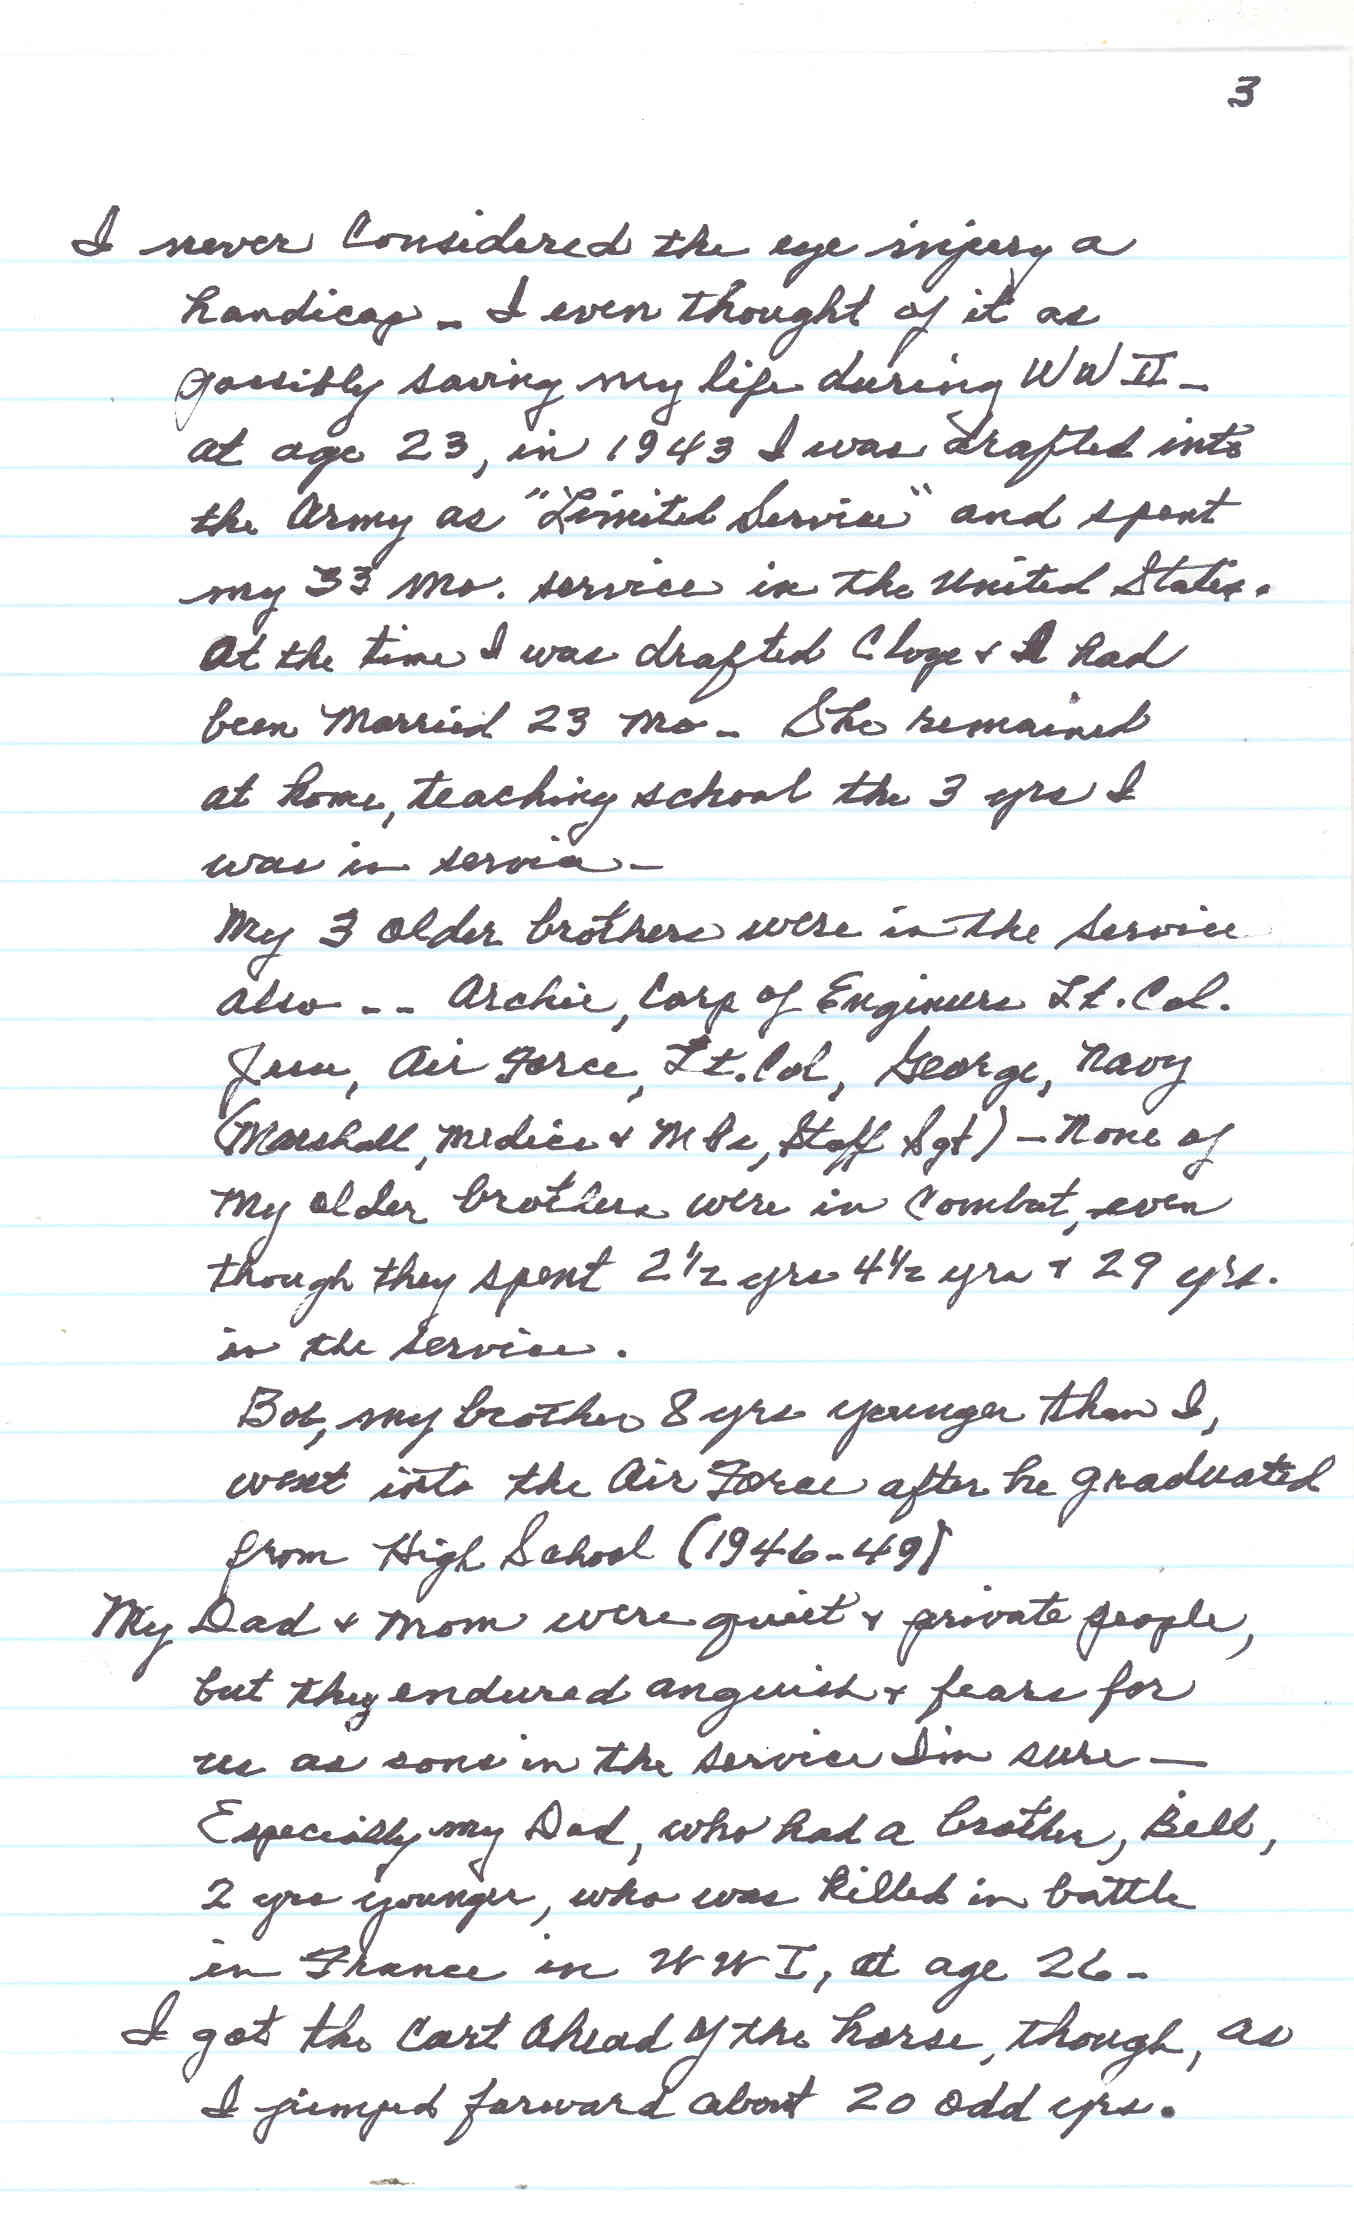 3
I never Considered the eye injury a
handicap - I even thought of it as
possibly saving my life during WW II -
at age 23, in 1943 I was drafted into
the Army as "Limited Service" and spent
my 33 Mo. service in the United States.
At the time I was drafted Cloye & I had
been Married 23 Mo - She remained
at home, teaching school the 3 yrs I
was in service -
My 3 older brothers were in the Service
also - - Archie, Corp of Engineers Lt. Col.
Jess, Air Force, Lt. Col, George, Navy
(Marshall, Medics & MPs, Staff Sgt) - None of
My older brothers were in Combat, even
though they spent 2 1/2 yrs 4 1/2 yrs & 29 yrs.
in the service.
Bob, my brother 8 yrs younger than I,
went into the Air Force after he graduated
from High School (1946-49)
My Dad & Mom were quiet & private people,
but they endured anguish & fears for
us as sons in the service I'm sure -
Especially my Dad, who had a brother, Bill,
2 yrs younger, who was killed in battle
in France in WW I, at age 26 -
I got the Cart Ahead of the horse, though, as
I jumped forward about 20 odd yrs.